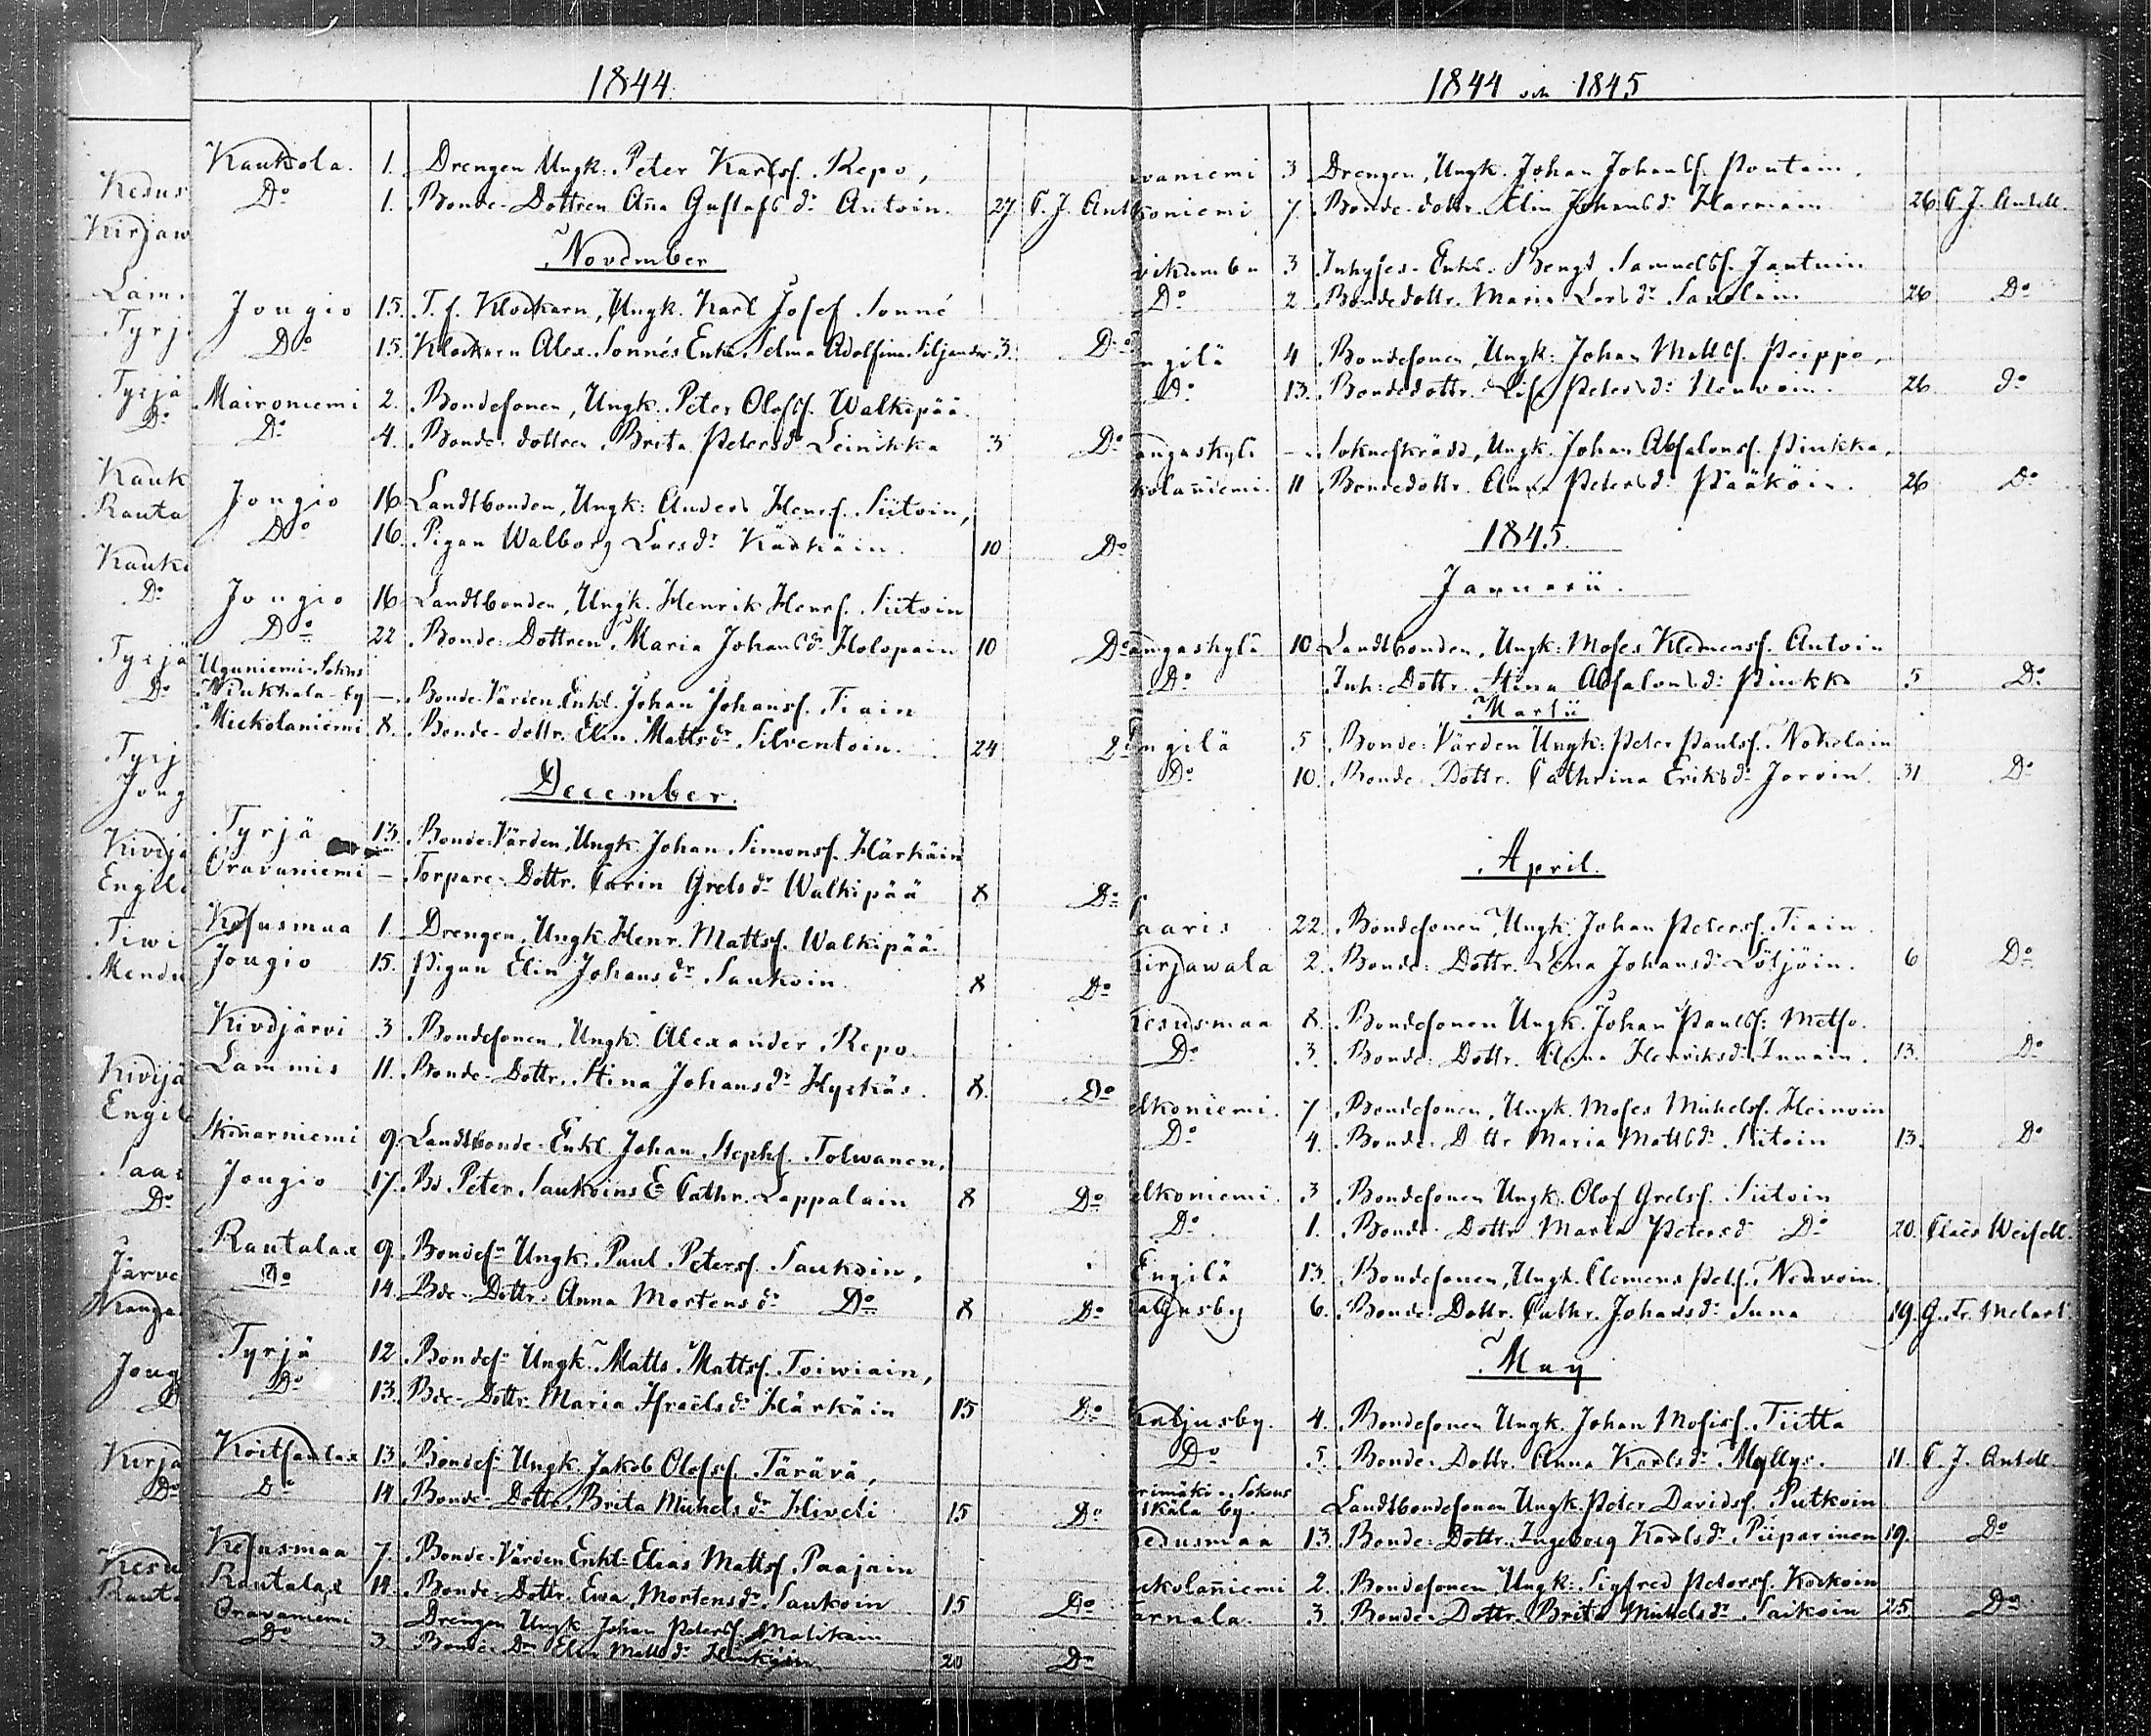 1844
Kaukola. 1. Drengen Ungk. Peter Karlsf. Repo,
Do 1. Bonde-Dottren Aña Gustafs dr Antoin. 27 C. J. Ant
November
Jougio 15. T. f. Klockarn, Ungk. Karl Josef Sonné
Do 15. Klockarn Alex. Sonnés Enka Selma Adolfina Siljander 3. Do
Maironiemi 2. Bondesonen, Ungk. Peter Olofsf. Walkipää
Do 4. Bonde-dottren Brita Petersdr Leinikka 3 Do
Jougio 16. Landtbonden, Ungk. Anders Henrsf. Siitoin,
Do 16. Pigan Walborg Larsdr Käckäin. 10 Do
Jougio 16. Landtbonden, Ungk. Henrik Henrsf. Siitoin
Do 22. Bonde-Dottren Maria Johansdr Holopain 10 Do
Uguniemi-Sokns
Niukkala-by —. Bonde-Värden Enkl. Johan Johansf. Tiain
Mickolaniemi 8. Bonde-dottr. Elin Mattsdr Silventoin. 24 Do
December.
Tyrjä 13. Bonde-Värden, Ungk Johan Simonsf. Härkäin
Oravaniemi — Torpare-Dottr. Carin Grelsdr Walkipää 8 Do
Kesusmaa 1. Drengen, Ungk. Henr. Mattsf. Walkipää.
Jougio 15. Pigan Elin Johansdr Saukoin. 8 Do
Kivijärvi 3 Bondesonen, Ungk. Alexander Repo.
Lammis 11. Bonde-Dottr. Stina Johansdr Hyrkäs. 8. Do
Skiñarniemi 9. Landtbonde-Enkl. Johan Stephsf. Tolwanen,
Jougio 17. Bd. Peter Saukoins E. Cathr. Lappalain 8 Do
Rautalax 9. Bondes. Ungk. Paul Petersf. Saukoin,
Do 14. Bde-Dottr. Anna Mortensdr Do 8 Do
Tyrjä 12. Bondes. Ungk. Matts Mattsf. Toiwiain,
Do 13. Bde-Dottr. Maria Israëlsdr Härkäin 15 Do
Koitsanlax 13. Bondes. Ungk. Jakob Olofsf. Tärävä,
Do 14. Bonde-Dottr. Brita Michelsdr Hiveli 15 Do
Kesusmaa 7. Bonde-Värden Enkl. Elias Mattsf. Paajain
Rautalax 14. Bonde-Dottr. Ewa Mortensdr Saukoin 15 Do
Oravaniemi Drengen Ungk Johan Petersf Matikain
Do 3. Bonde-Dr Elin Mattsdr 20 Do
1844 och 1845
waniemi 3 Drengen, Ungk. Johan Johansf. Pontain.
koniemi 7 Bonde-dottr. Elin Johansdr Harmain 26 C. J. Antell.
3 Inhyses-Enkl. Bengt Samuelsf. Jantuin
Do 2 Bondedottr. Maria Larsdr Savolain. 26 Do
ngilä 4 Bondesonen, Ungk. Johan Mattsf. Peippo,
Do 13. Bondedottr. Lisa Petersdr Neuvoin. 26 do
angaskylä —. Ungk. Johan Absalonsf. Pinkka,
kolañiemi. 11 Bondedottr. Anna Petersdr Pääköin. 26 Do
1845.
Januarii.
angaskylä 10 Landtbonden, Ungk. Moses Klemensf. Antoin
Do Inh: Dottr. Stina Absalonsdr Pinkka 5 Do
Martii
ngilä 5 Bonde-Värden Ungk. Peter Paulsf. Nokelain
Do 10. Bonde-Dottr. Cathrina Eriksdr Joroin. 31 Do
April.
aaris 22. Bondesonen, Ungk. Johan Petersf. Tiain.
irjawala 2. Bonde-Dottr. Lena Johansdr Löljöin. 6 Do
esusmaa 8. Bondesonen Ungk. Johan Paulsf: Metso.
Do 3. Bonde-Dottr. Anna Henriksdr Innain. 13. Do
lkoniemi. 7. Bondesonen, Ungk. Moses Michelsf. Heinoin
Do 4. Bonde-Dottr Maria Mattsdr Siitoin 13. Do
lkoniemi 3 Bondesonen Ungk. Olof Grelsf. Siitoin
Do 1. Bonde-Dottr Maria Petersd Do 20. Claës Weisell.
Engilä 13. Bondesonen, Ungk. Clemens Petsf. Neuvoin.
6. Bonde-Dottr. Cathr. Johansdr Suna 19. G. Fr. Melart
May
4. Bondesonen Ungk. Johan Mosisf. Tiitta
Do 5. Bonde-Dottr. Anna Karlsdr Myllys. 11. C. J. Antell
rimäki-Sokns
skäla by. Landtbondesonen Ungk. Peter Davidsf. Putkoin
esusmaa 13. Bonde-Dottr. Ingeborg Karlsdr Piiparinen 19. Do
ckolañiemi 2. Bondesonen, Ungk. Sigfred Petersf. Kockoin
arnala. 3. Bonde-Dottr. Brita Michelsdr Saikoin 25 Do